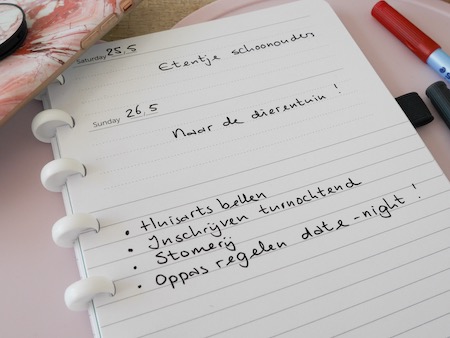 Saturday 25,5
Etentje schoonouders
Sunday 26,5
Naar de dierentuin !
• Huisarts bellen
• Inschrijven turnochtend
• Stomerij
• Oppas regelen date-night !